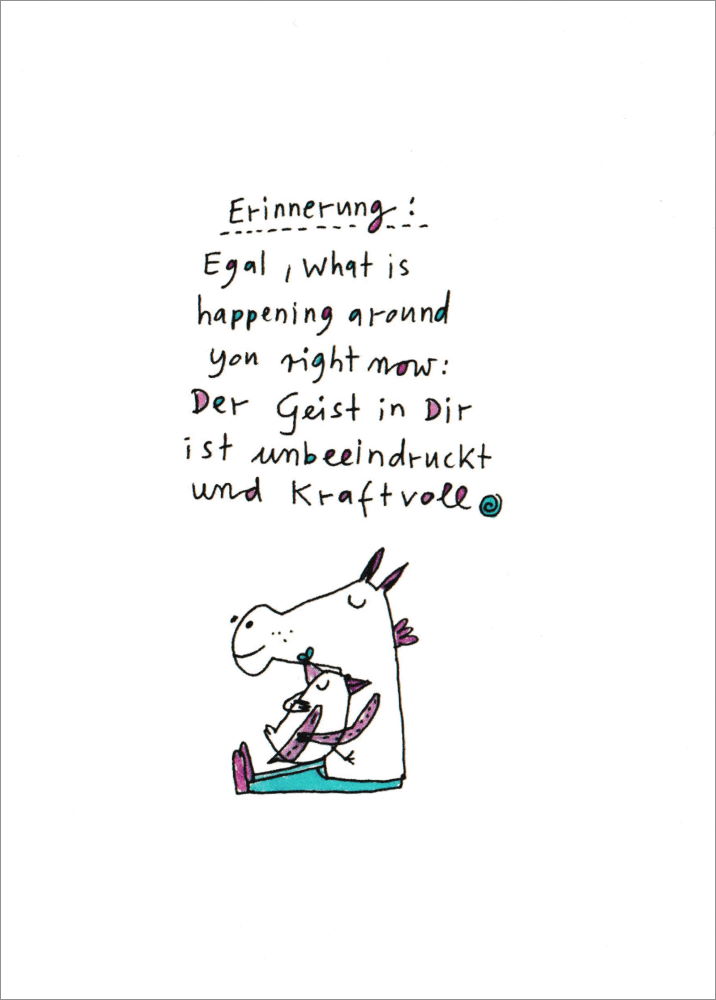 Erinnerung:
Egal, What is
happening around
you right now:
Der Geist in Dir
ist unbeeindruckt
und Kraftvoll